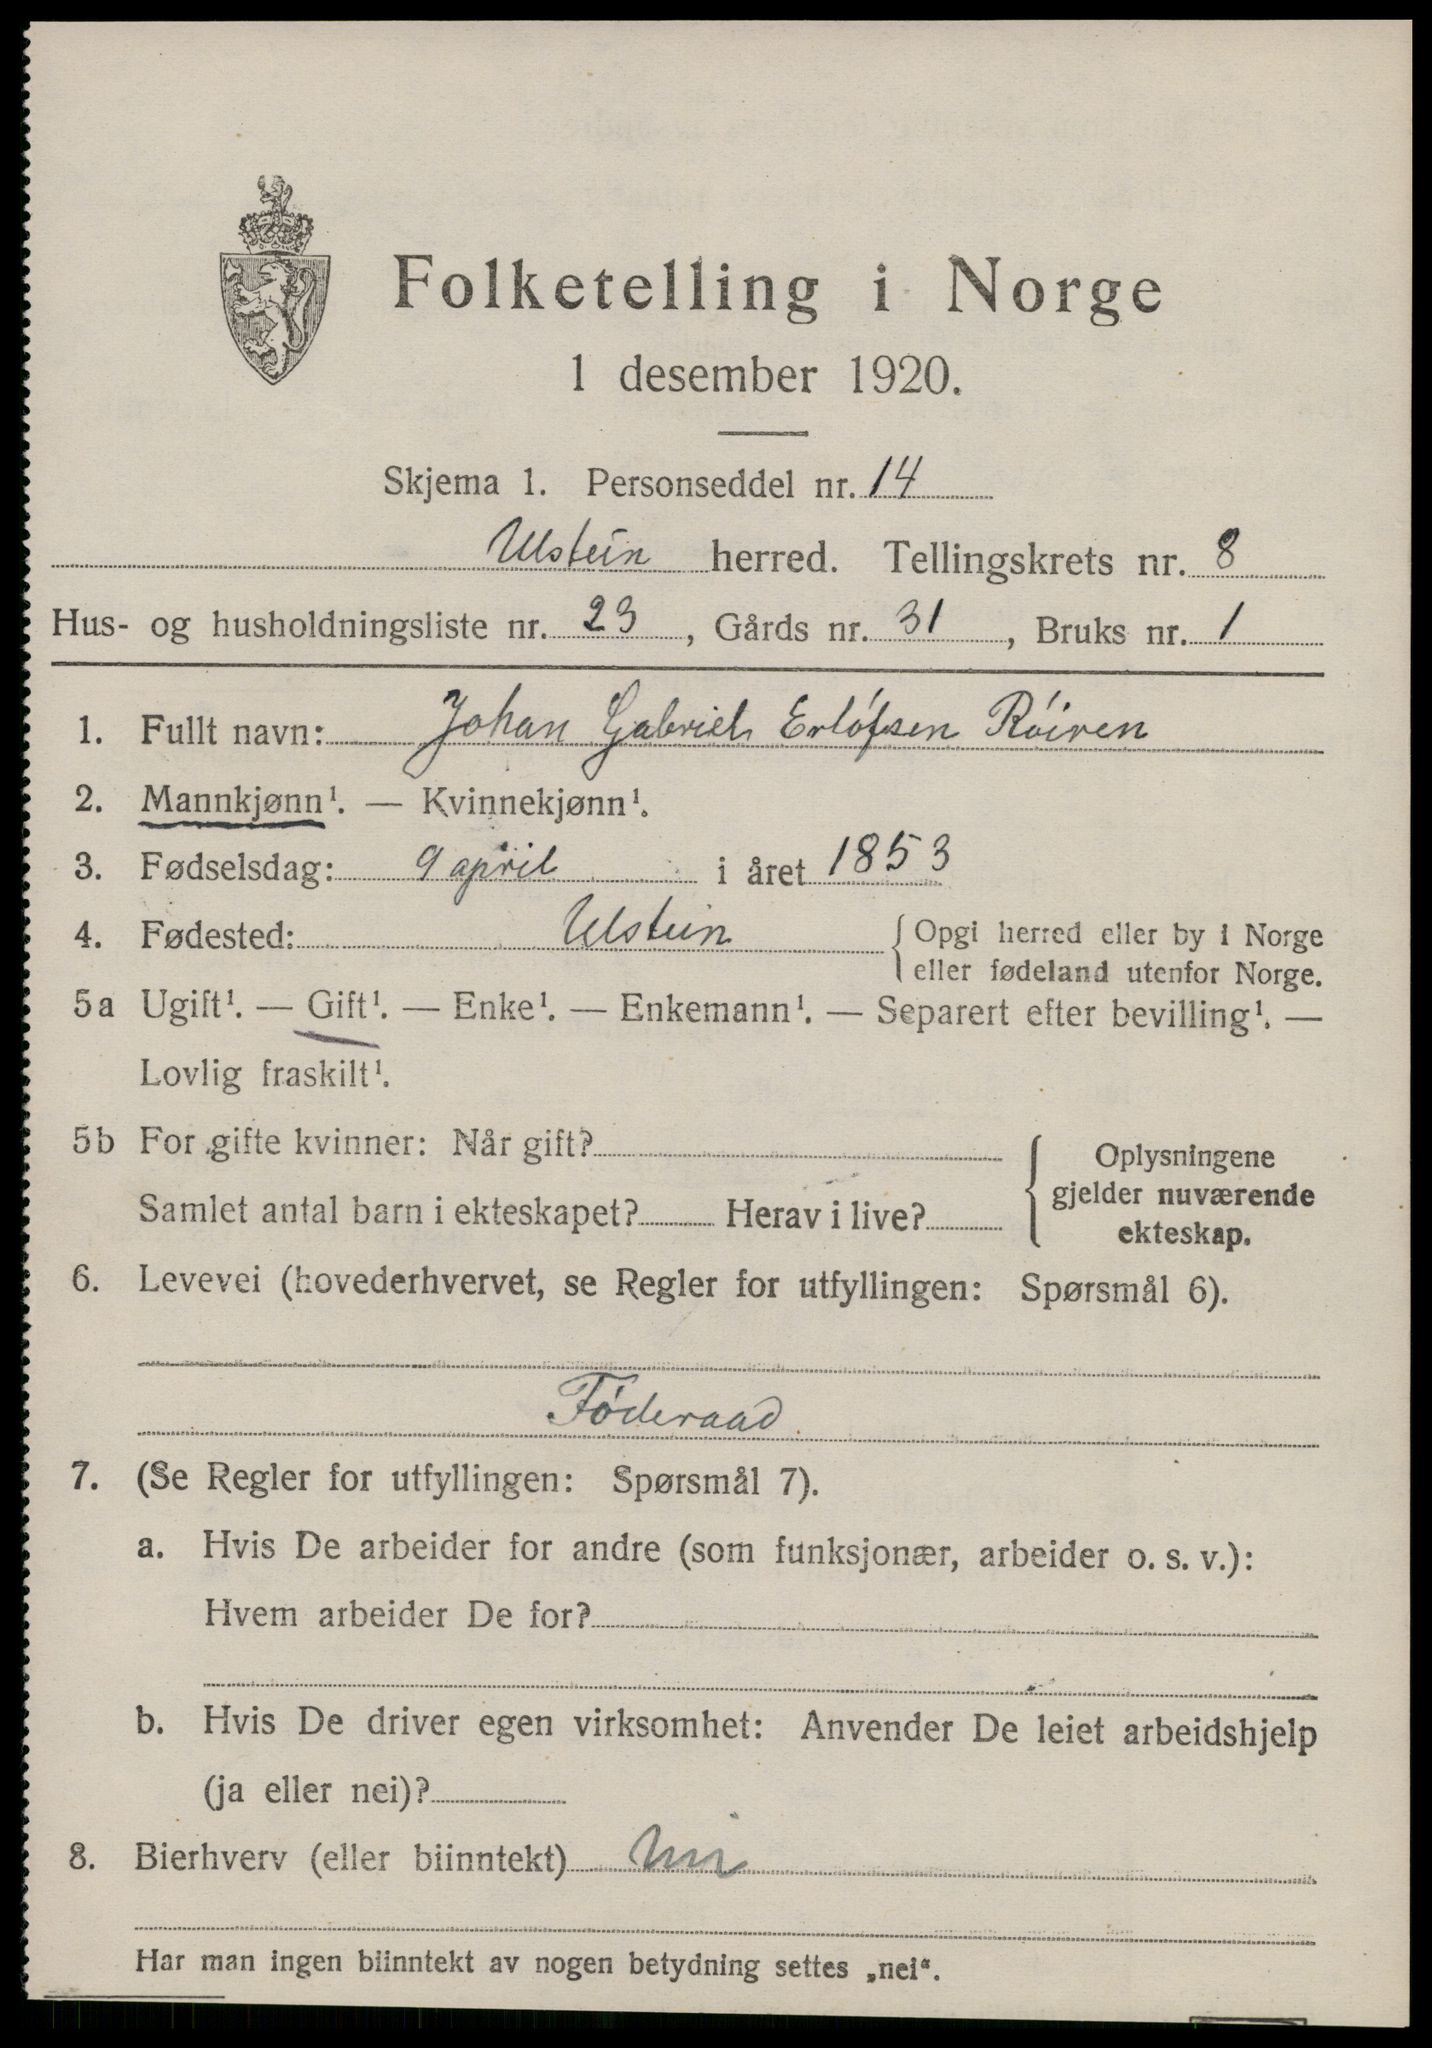 Folketelling i Norge
1 desember 1920.
Skjema 1. Personseddel nr. 14
Ulstein herred. Tellingskrets nr. 8
Hus- og husholdningsliste nr. 23, Gårds nr. 31, Bruks nr. 1
1. Fullt navn: Johan Gabriel Erlófsen Róiren
2. Mannkjønn¹. — Kvinnekjønn¹.
3. Fødselsdag: 9 april i året 1853
4. Fødested: Ulstein { Opgi herred eller by i Norge
eller fødeland utenfor Norge.
5a Ugift¹. — Gift¹. — Enke¹. — Enkemann¹. — Separert efter bevilling¹. —
Lovlig fraskilt¹.
5b For gifte kvinner: Når gift?
Samlet antal barn i ekteskapet? Herav i live?
{ Oplysningene
gjelder nuværende
ekteskap.
6. Levevei (hovederhvervet, se Regler for utfyllingen: Spørsmål 6).
Fóderaad
7. (Se Regler for utfyllingen: Spørsmål 7).
a. Hvis De arbeider for andre (som funksjonær, arbeider o. s. v.):
Hvem arbeider De for?
b. Hvis De driver egen virksomhet: Anvender De leiet arbeidshjelp
(ja eller nei)?
8. Bierhverv (eller biinntekt) nei
Har man ingen biinntekt av nogen betydning settes „nei“.